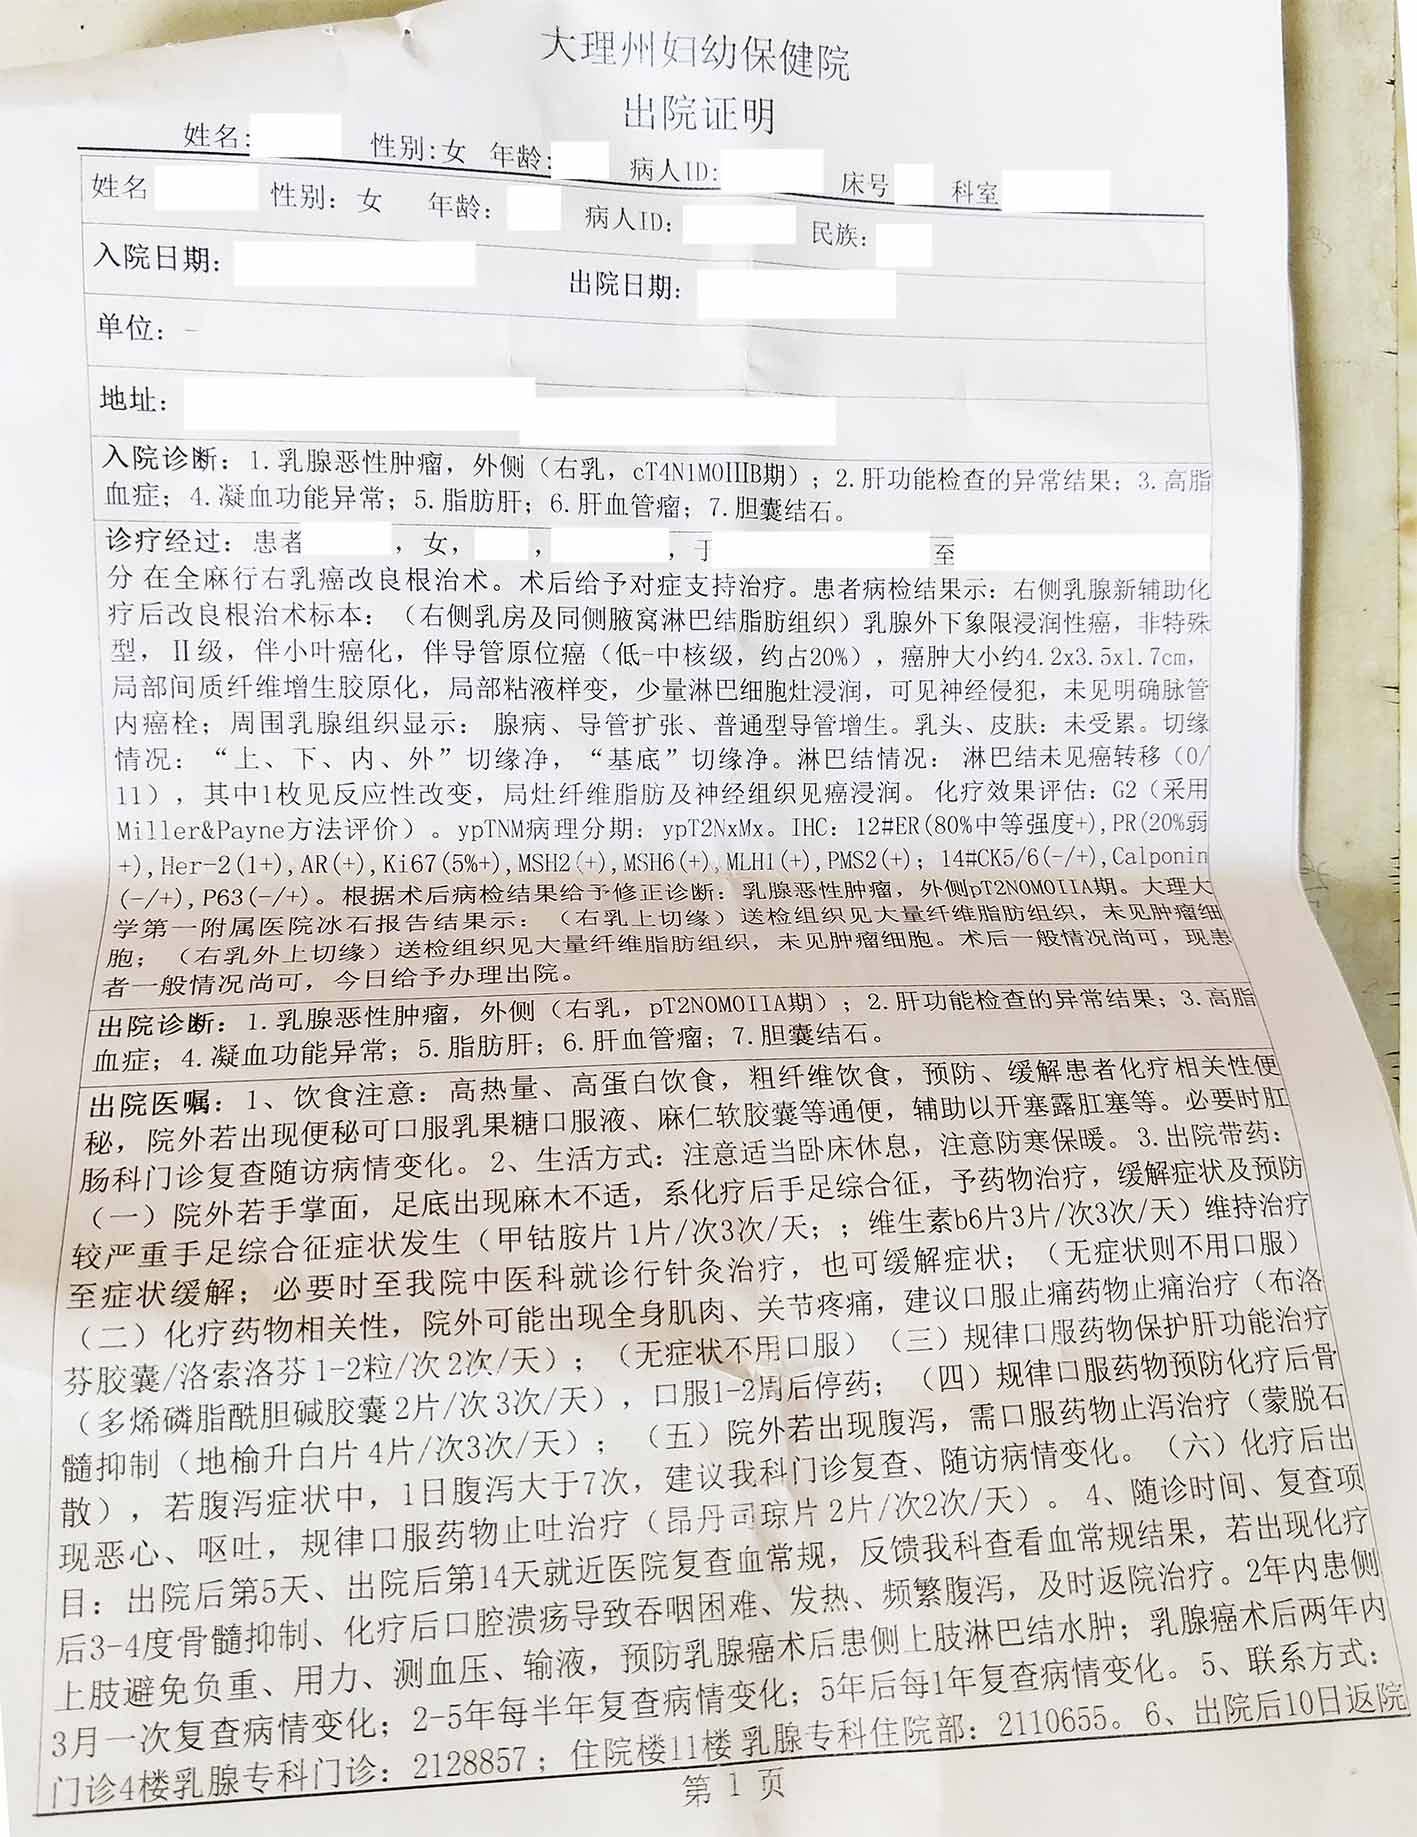 大理州妇幼保健院
出院证明
姓名: 性别:女 年龄: 病人ID: 床号 科室
姓名 性别: 女 年龄: 病人ID: 民族:
入院日期: 出院日期:
单位: -
地址:
入院诊断: 1.乳腺恶性肿瘤, 外侧 (右乳, cT4N1M0IIIB期) ; 2.肝功能检查的异常结果; 3.高脂
血症; 4.凝血功能异常; 5.脂肪肝; 6.肝血管瘤; 7.胆囊结石。
诊疗经过: 患者 , 女, , , 于 至
分 在全麻行右乳癌改良根治术。术后给予对症支持治疗。患者病检结果示: 右侧乳腺新辅助化
疗后改良根治术标本: (右侧乳房及同侧腋窝淋巴结脂肪组织) 乳腺外下象限浸润性癌, 非特殊
型, II级, 伴小叶癌化, 伴导管原位癌 (低-中核级, 约占20%) , 癌肿大小约4.2x3.5x1.7cm,
局部间质纤维增生胶原化, 局部粘液样变, 少量淋巴细胞灶浸润, 可见神经侵犯, 未见明确脉管
内癌栓; 周围乳腺组织显示: 腺病、导管扩张、普通型导管增生。乳头、皮肤: 未受累。切缘
情况: “上、下、内、外”切缘净, “基底”切缘净。淋巴结情况: 淋巴结未见癌转移 (0/
11) , 其中1枚见反应性改变, 局灶纤维脂肪及神经组织见癌浸润。 化疗效果评估: G2 (采用
Miller&Payne方法评价) 。ypTNM病理分期: ypT2NxMx。IHC: 12#ER(80%中等强度+), PR(20%弱
+), Her-2(1+), AR(+), Ki67(5%+), MSH2(+), MSH6(+), MLH1(+), PMS2(+); 14#CK5/6(-/+), Calponin
(-/+), P63(-/+)。根据术后病检结果给予修正诊断: 乳腺恶性肿瘤, 外侧pT2N0M0IIA期。大理大
学第一附属医院冰石报告结果示: (右乳上切缘) 送检组织见大量纤维脂肪组织, 未见肿瘤细
胞; (右乳外上切缘) 送检组织见大量纤维脂肪组织, 未见肿瘤细胞。术后一般情况尚可, 现患
者一般情况尚可, 今日给予办理出院。
出院诊断: 1.乳腺恶性肿瘤, 外侧 (右乳, pT2N0M0IIA期) ; 2.肝功能检查的异常结果; 3.高脂
血症; 4.凝血功能异常; 5.脂肪肝; 6.肝血管瘤; 7.胆囊结石。
出院医嘱: 1、饮食注意: 高热量、高蛋白饮食, 粗纤维饮食, 预防、缓解患者化疗相关性便
秘, 院外若出现便秘可口服乳果糖口服液、麻仁软胶囊等通便, 辅助以开塞露肛塞等。必要时肛
肠科门诊复查随访病情变化。2、生活方式: 注意适当卧床休息, 注意防寒保暖。3.出院带药:
(一) 院外若手掌面, 足底出现麻木不适, 系化疗后手足综合征, 予药物治疗, 缓解症状及预防
较严重手足综合征症状发生 (甲钴胺片 1片/次3次/天; ; 维生素b6片3片/次3次/天) 维持治疗
至症状缓解; 必要时至我院中医科就诊行针灸治疗, 也可缓解症状; (无症状则不用口服)
(二) 化疗药物相关性, 院外可能出现全身肌肉、关节疼痛, 建议口服止痛药物止痛治疗 (布洛
芬胶囊/洛索洛芬 1-2粒/次 2次/天) ; (无症状不用口服) (三) 规律口服药物保护肝功能治疗
(多烯磷脂酰胆碱胶囊 2片/次 3次/天) , 口服1-2周后停药; (四) 规律口服药物预防化疗后骨
髓抑制 (地榆升白片 4片/次3次/天) ; (五) 院外若出现腹泻, 需口服药物止泻治疗 (蒙脱石
散) , 若腹泻症状中, 1日腹泻大于7次, 建议我科门诊复查、随访病情变化。(六) 化疗后出
现恶心、呕吐, 规律口服药物止吐治疗 (昂丹司琼片 2片/次2次/天) 。 4、随诊时间、复查项
目: 出院后第5天、出院后第14天就近医院复查血常规, 反馈我科查看血常规结果, 若出现化疗
后3-4度骨髓抑制、化疗后口腔溃疡导致吞咽困难、发热、频繁腹泻, 及时返院治疗。2年内患侧
上肢避免负重、用力、测血压、输液, 预防乳腺癌术后患侧上肢淋巴结水肿; 乳腺癌术后两年内
3月一次复查病情变化; 2-5年每半年复查病情变化; 5年后每1年复查病情变化。5、联系方式:
门诊4楼乳腺专科门诊: 2128857 ; 住院楼11楼 乳腺专科住院部: 2110655。6、出院后10日返院
第 1 页